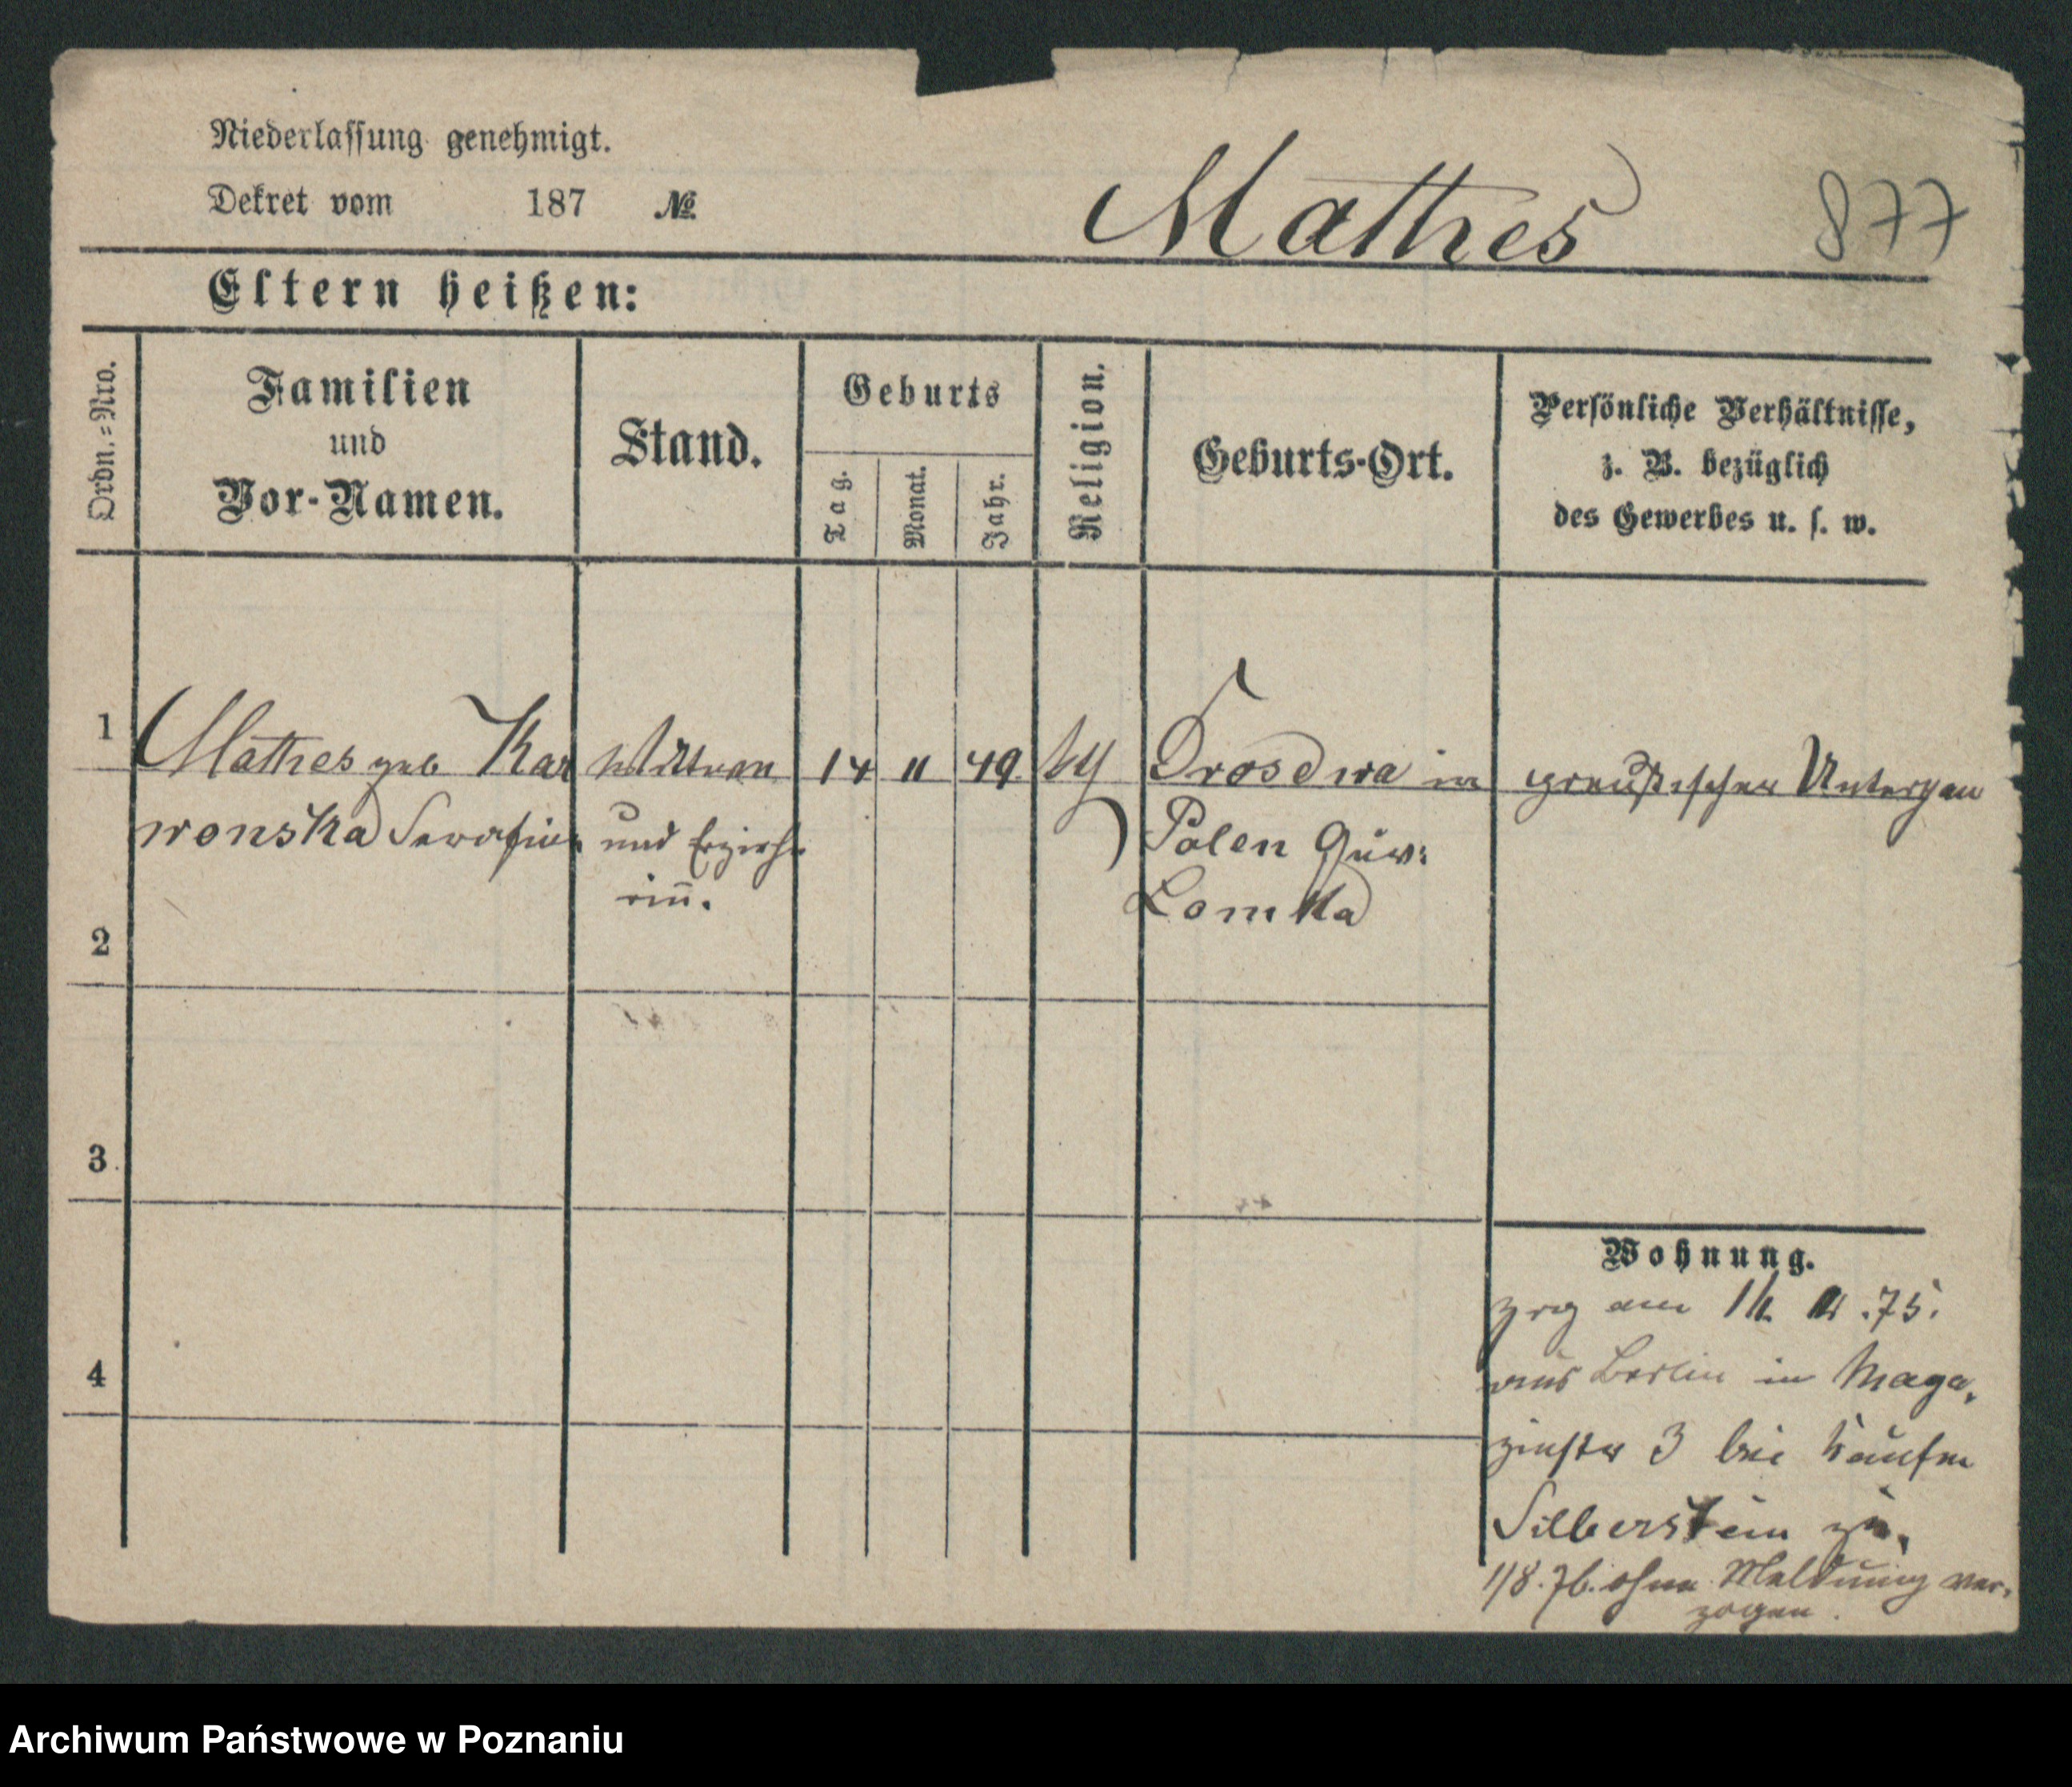 Niederlassung genehmigt.
Dekret vom 187 №
Mathes 877
Eltern heißen:
Ordn.=Nro.
Familien
und
Vor-Namen.
Stand.
Geburts
Tag.
Monat.
Jahr.
Religion.
Geburts-Ort.
Persönliche Verhältnisse,
z. B. bezüglich
des Gewerbes u. s. w.
1 Mathes geb Kar
wonska
Wittwe
und Erziehe
rin.
14 11 49
Drosdwa in
Polen Guw:
Lomka
preußischer
2
3
4
Wohnung.
zog am .75.
aus Berlin in Maga-
zinstr 3 bei Kaufm
Silberstein zu.
1/8.76. ohne Meldung ver-
zogen.
Archiwum Państwowe w Poznaniu